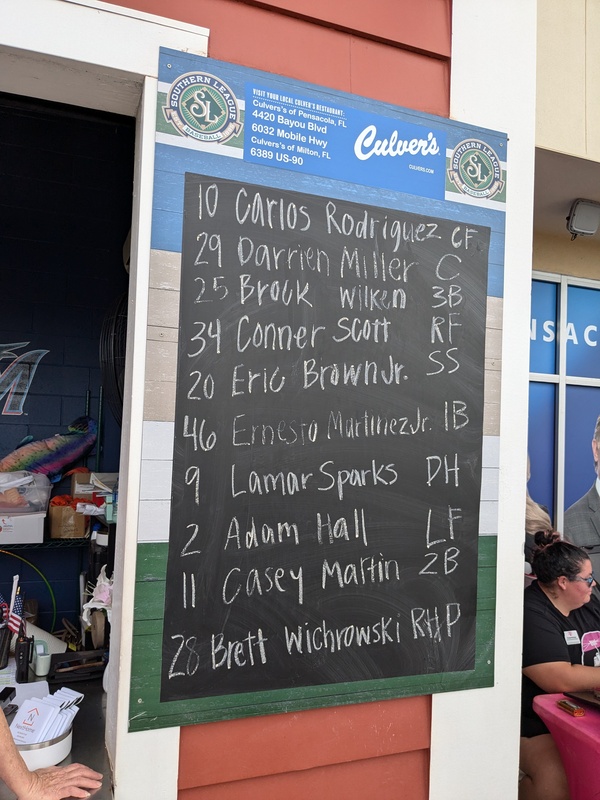 SOUTHERN LEAGUE
SL
BASEBALL
VISIT YOUR LOCAL CULVER'S RESTAURANT:
Culver's of Pensacola, FL
4420 Bayou Blvd
6032 Mobile Hwy
Culver's of Milton, FL
6389 US-90
Culver's
CULVERS.COM
SOUTHERN LEAGUE
SL
BASEBALL
10 Carlos Rodriguez CF
29 Darrien Miller C
25 Brock Wilken 3B
34 Conner Scott RF
20 Eric Brown Jr. SS
46 Ernesto Martinez Jr. 1B
9 Lamar Sparks DH
2 Adam Hall LF
11 Casey Martin 2B
28 Brett Wichrowski RHP
NSAC